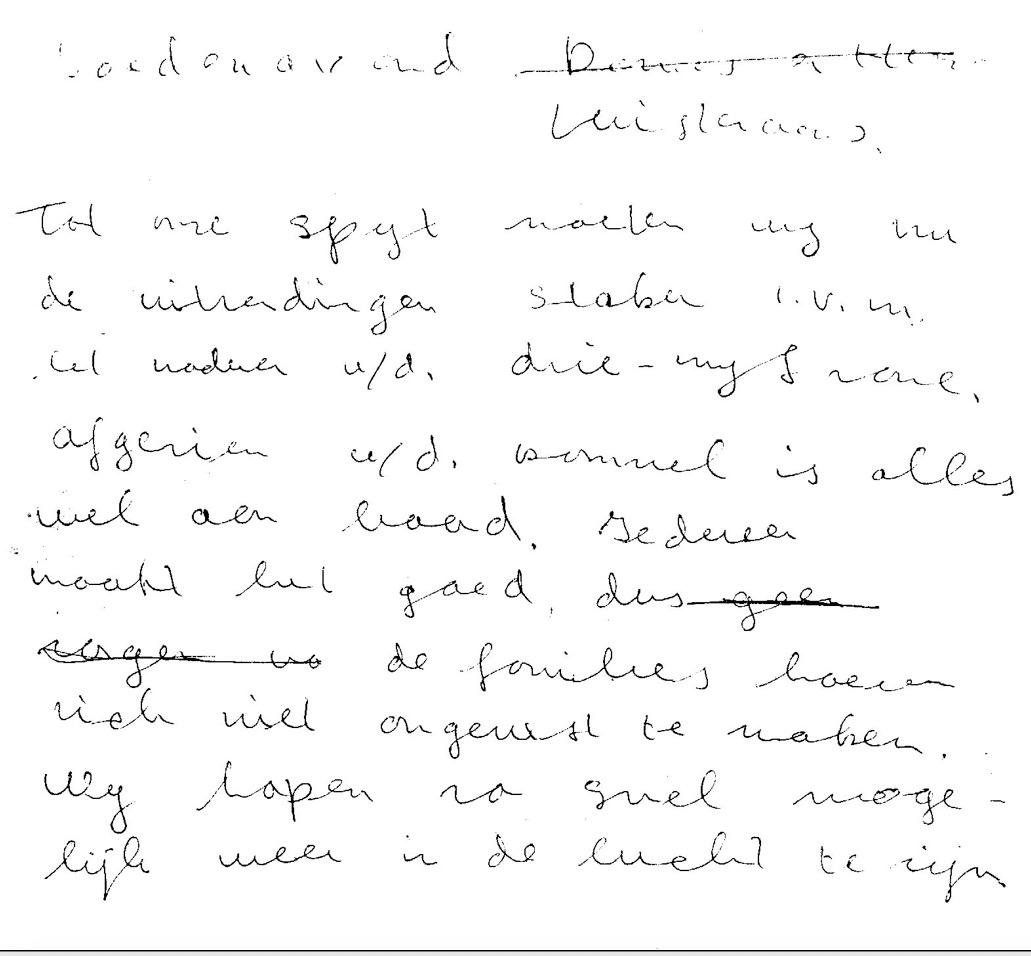 Goedenavond ~~Dames en Heren~~
luisteraars.
Tot onze spyt moeten wy nu
de uitzendingen staken i.v.m.
het naderen v/d. drie-myl zone.
afgezien v/d. rommel is alles
wel aan boord. Iedereen
maakt het goed, dus ~~geen~~
~~zorgen vo~~ de families hoeven
zich niet ongerust te maken.
Wy hopen zo snel moge-
lijk weer in de lucht te zijn